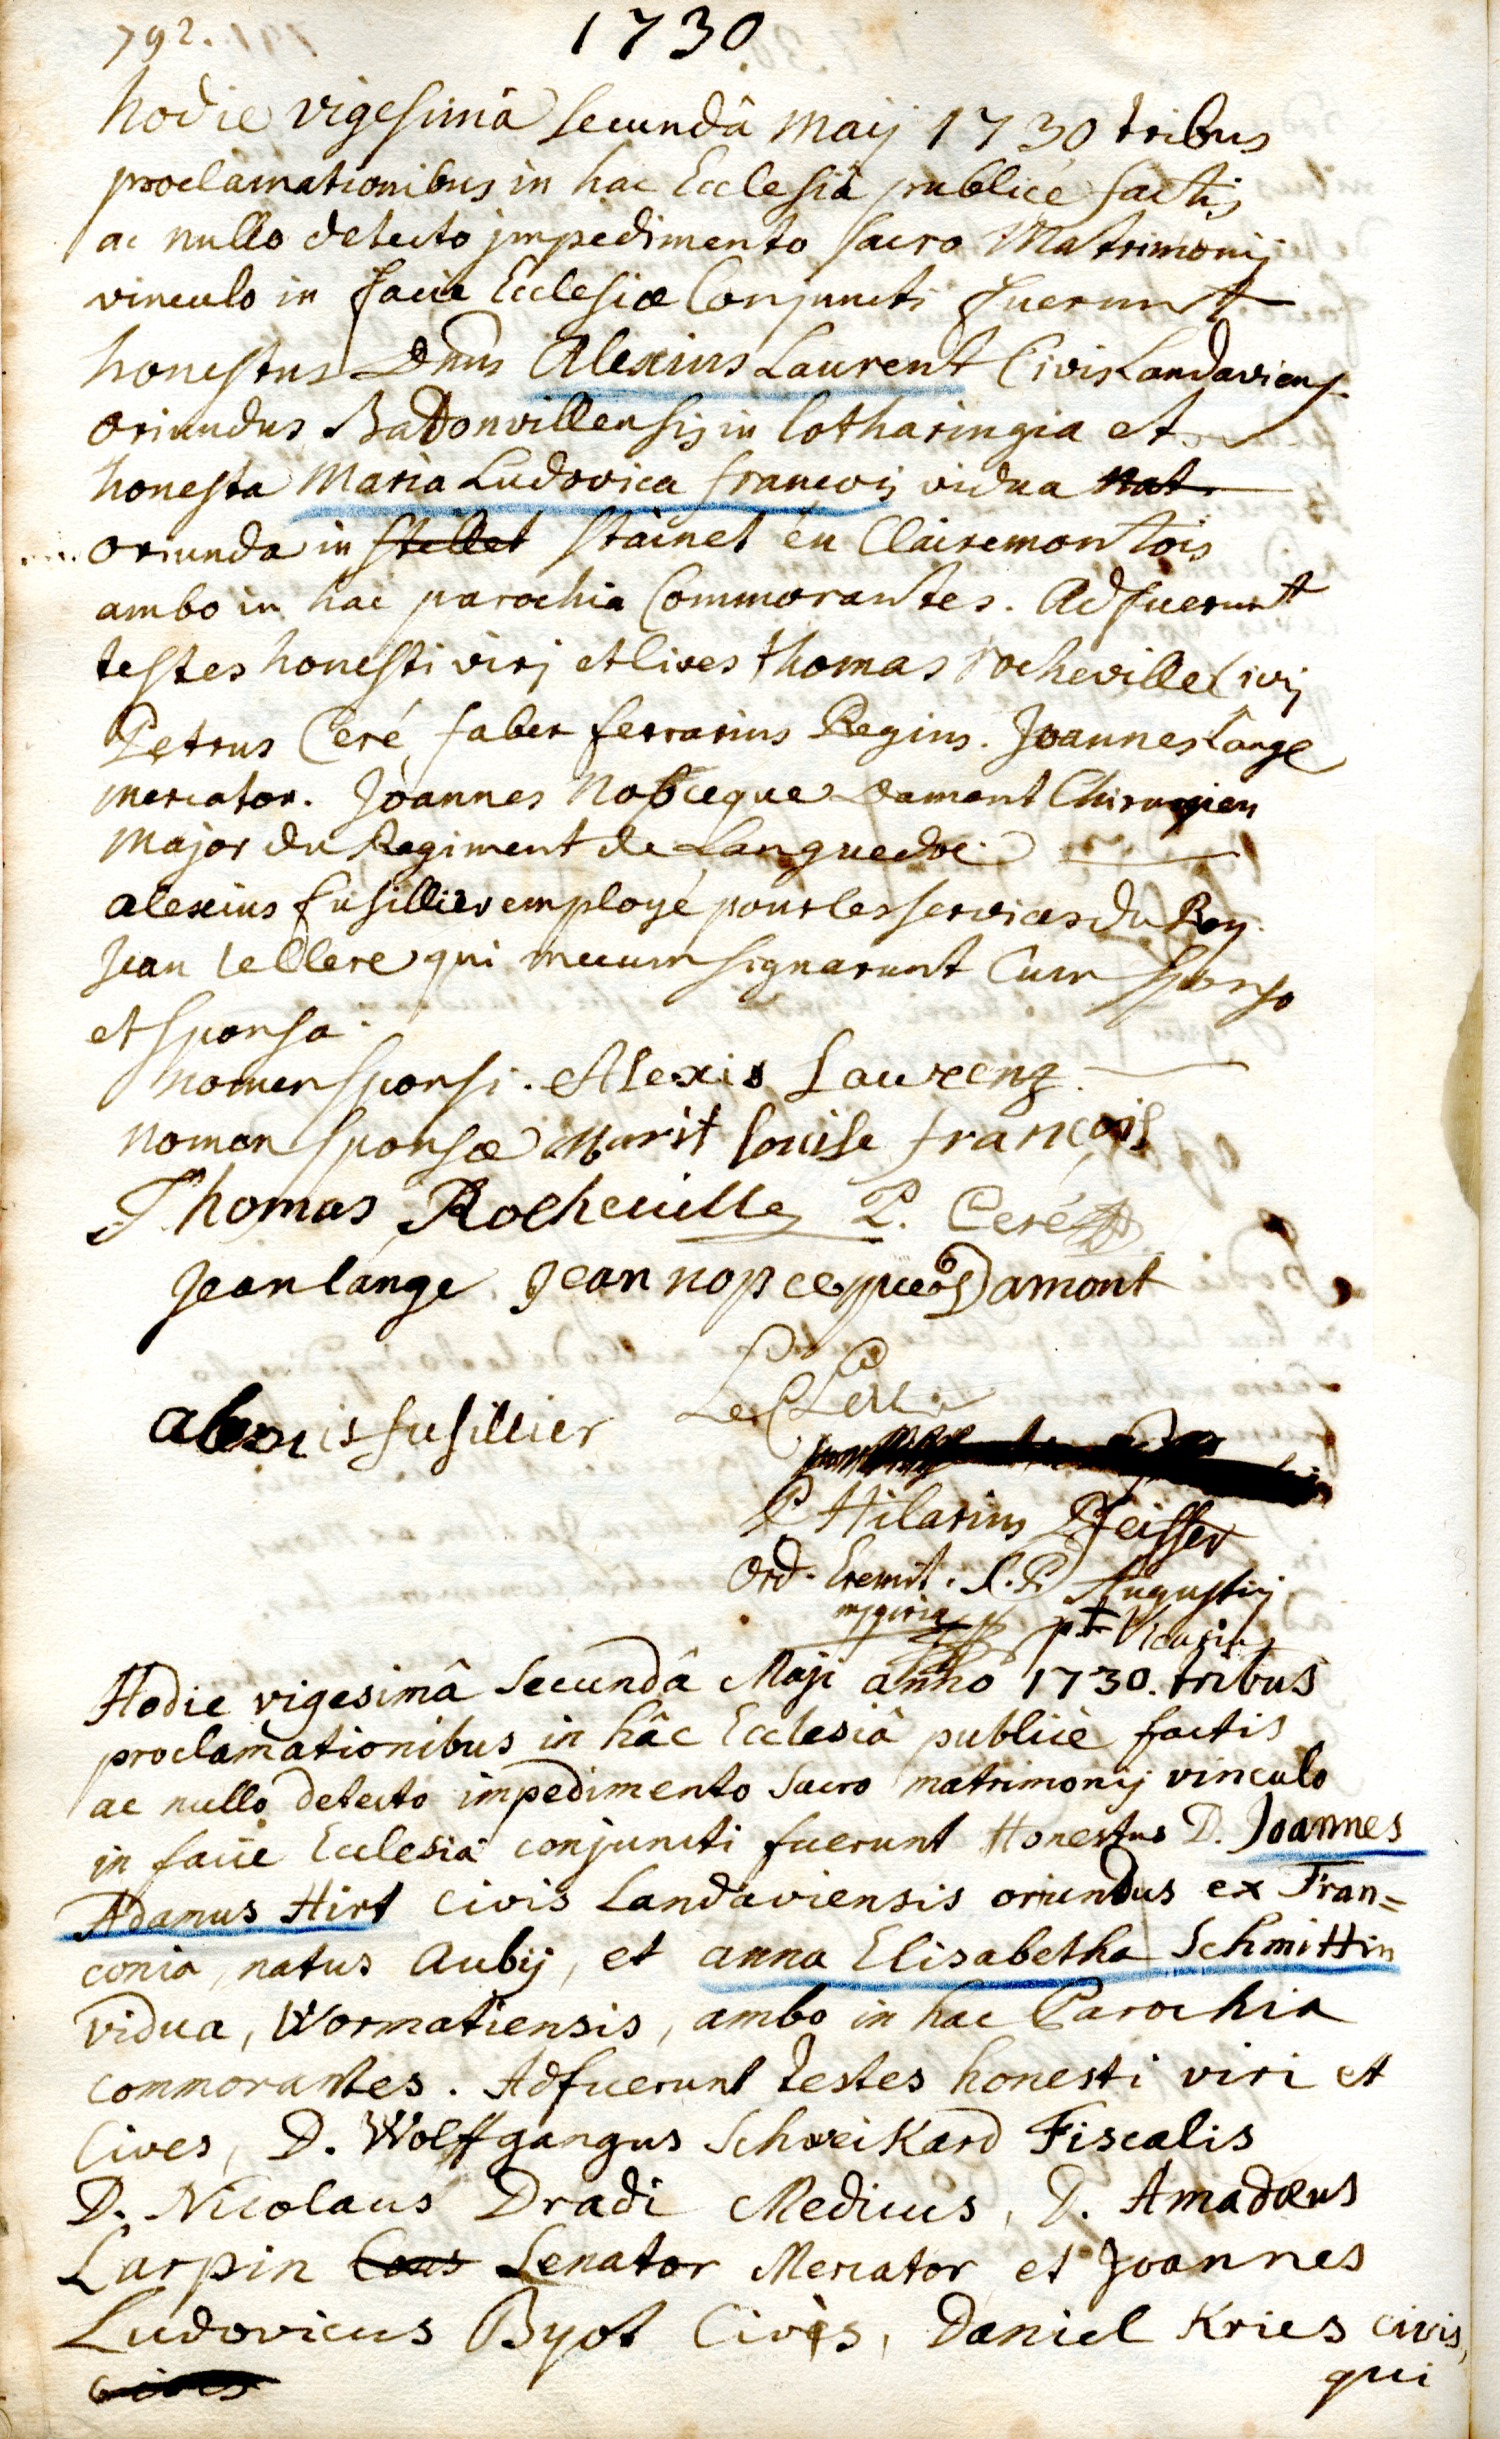 792.
1730
hodie vigesimâ secundâ Maij 1730 tribus
proclamationibus in hac Ecclesiâ publice factis
ac nullo detecto jmpedimento sacro Matrimonij
vinculo in facie Ecclesiæ Conjuncti fuerunt
honestus Dnus Alexius Laurent Civis Landaviens.
oriundus Badonvillensis in lotharingia et
honesta Maria Ludovica françois vidua nat.
oriunda in stellet stainet en Clairemontois
ambo in hac parochia Commorantes. Adfuerunt
testes honesti virj et Cives Thomas rocheville Civis
Petrus Ceré faber ferrarius Regius. Joannes Lange
mercator. Joannes Nobceque Damont Chirurgien
Major du Regiment de Languedoc.
alexius fusillier employé pour les services du Roy.
Jean leClerc qui mecum signarunt Cum sponso
et sponsa.
nomen sponsi. Alexis Laurenz.
nomen sponsæ Marit louise françois
Thomas Rocheuille P. Ceré
Jean lange Jean nopceque Damont
alexis fusillier
Le Clerc
P. Hilarius Pfeiffer
Ord. Eremit. S. P. Augustinj
mppria p.t. Vicarius
Hodie vigesimâ secundâ Maji anno 1730. tribus
proclamationibus in hâc Ecclesiâ publicè factis
ac nullo detecto impedimento sacro matrimonij vinculo
in facie Ecclesia conjuncti fuerunt Honestus D. Joannes
Adamus Hirt civis Landaviensis oriundus ex Fran=
conia, natus Aubij, et anna Elisabetha Schmittin
vidua, Wormatiensis, ambo in hac Parochia
commorantes. Adfuerunt testes honesti viri et
Cives, D. Wolffgangus Schweikard Fiscalis
D. Nicolaus Dradi Medicus, D. Amadæus
Larpin Senator Mercator et Joannes
Ludovicus Byot Civis, Daniel Kries civis,
cives
qui